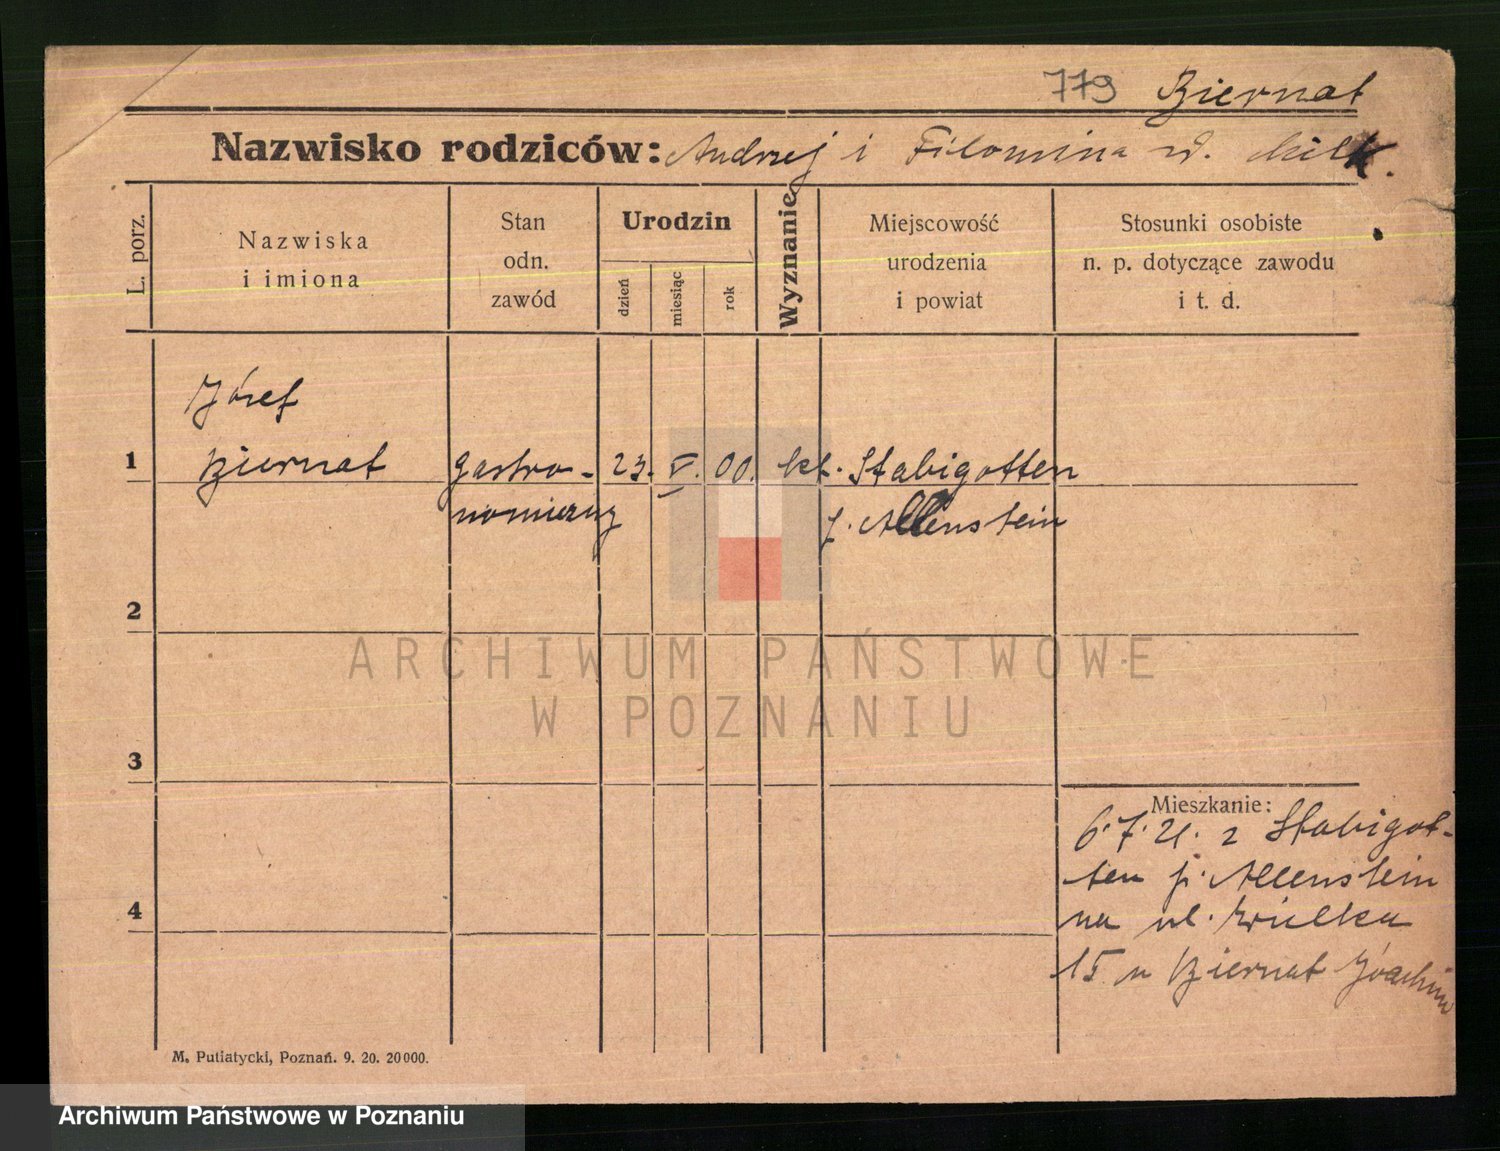 779 Biernat
Nazwisko rodziców: Andrzej i Filomina
L. porz.
Nazwiska
i imiona
Stan
odn.
zawód
Urodzin
dzień
miesiąc
rok
Wyznanie
Miejscowość
urodzenia
i powiat
Stosunki osobiste
n. p. dotyczące zawodu
i t. d.
Józef
1 Biernat gastro- 23. V. 00. kt. Stabigotten
nomiczny p. Allenstein
2
3
4
Mieszkanie:
6.7.21. z Stabigot-
ten p. Allenstein
na ul. Wielka
15 u Biernat Joachim
M. Putiatycki, Poznań. 9. 20. 20000.
ARCHIWUM PAŃSTWOWE
W POZNANIU
Archiwum Państwowe w Poznaniu